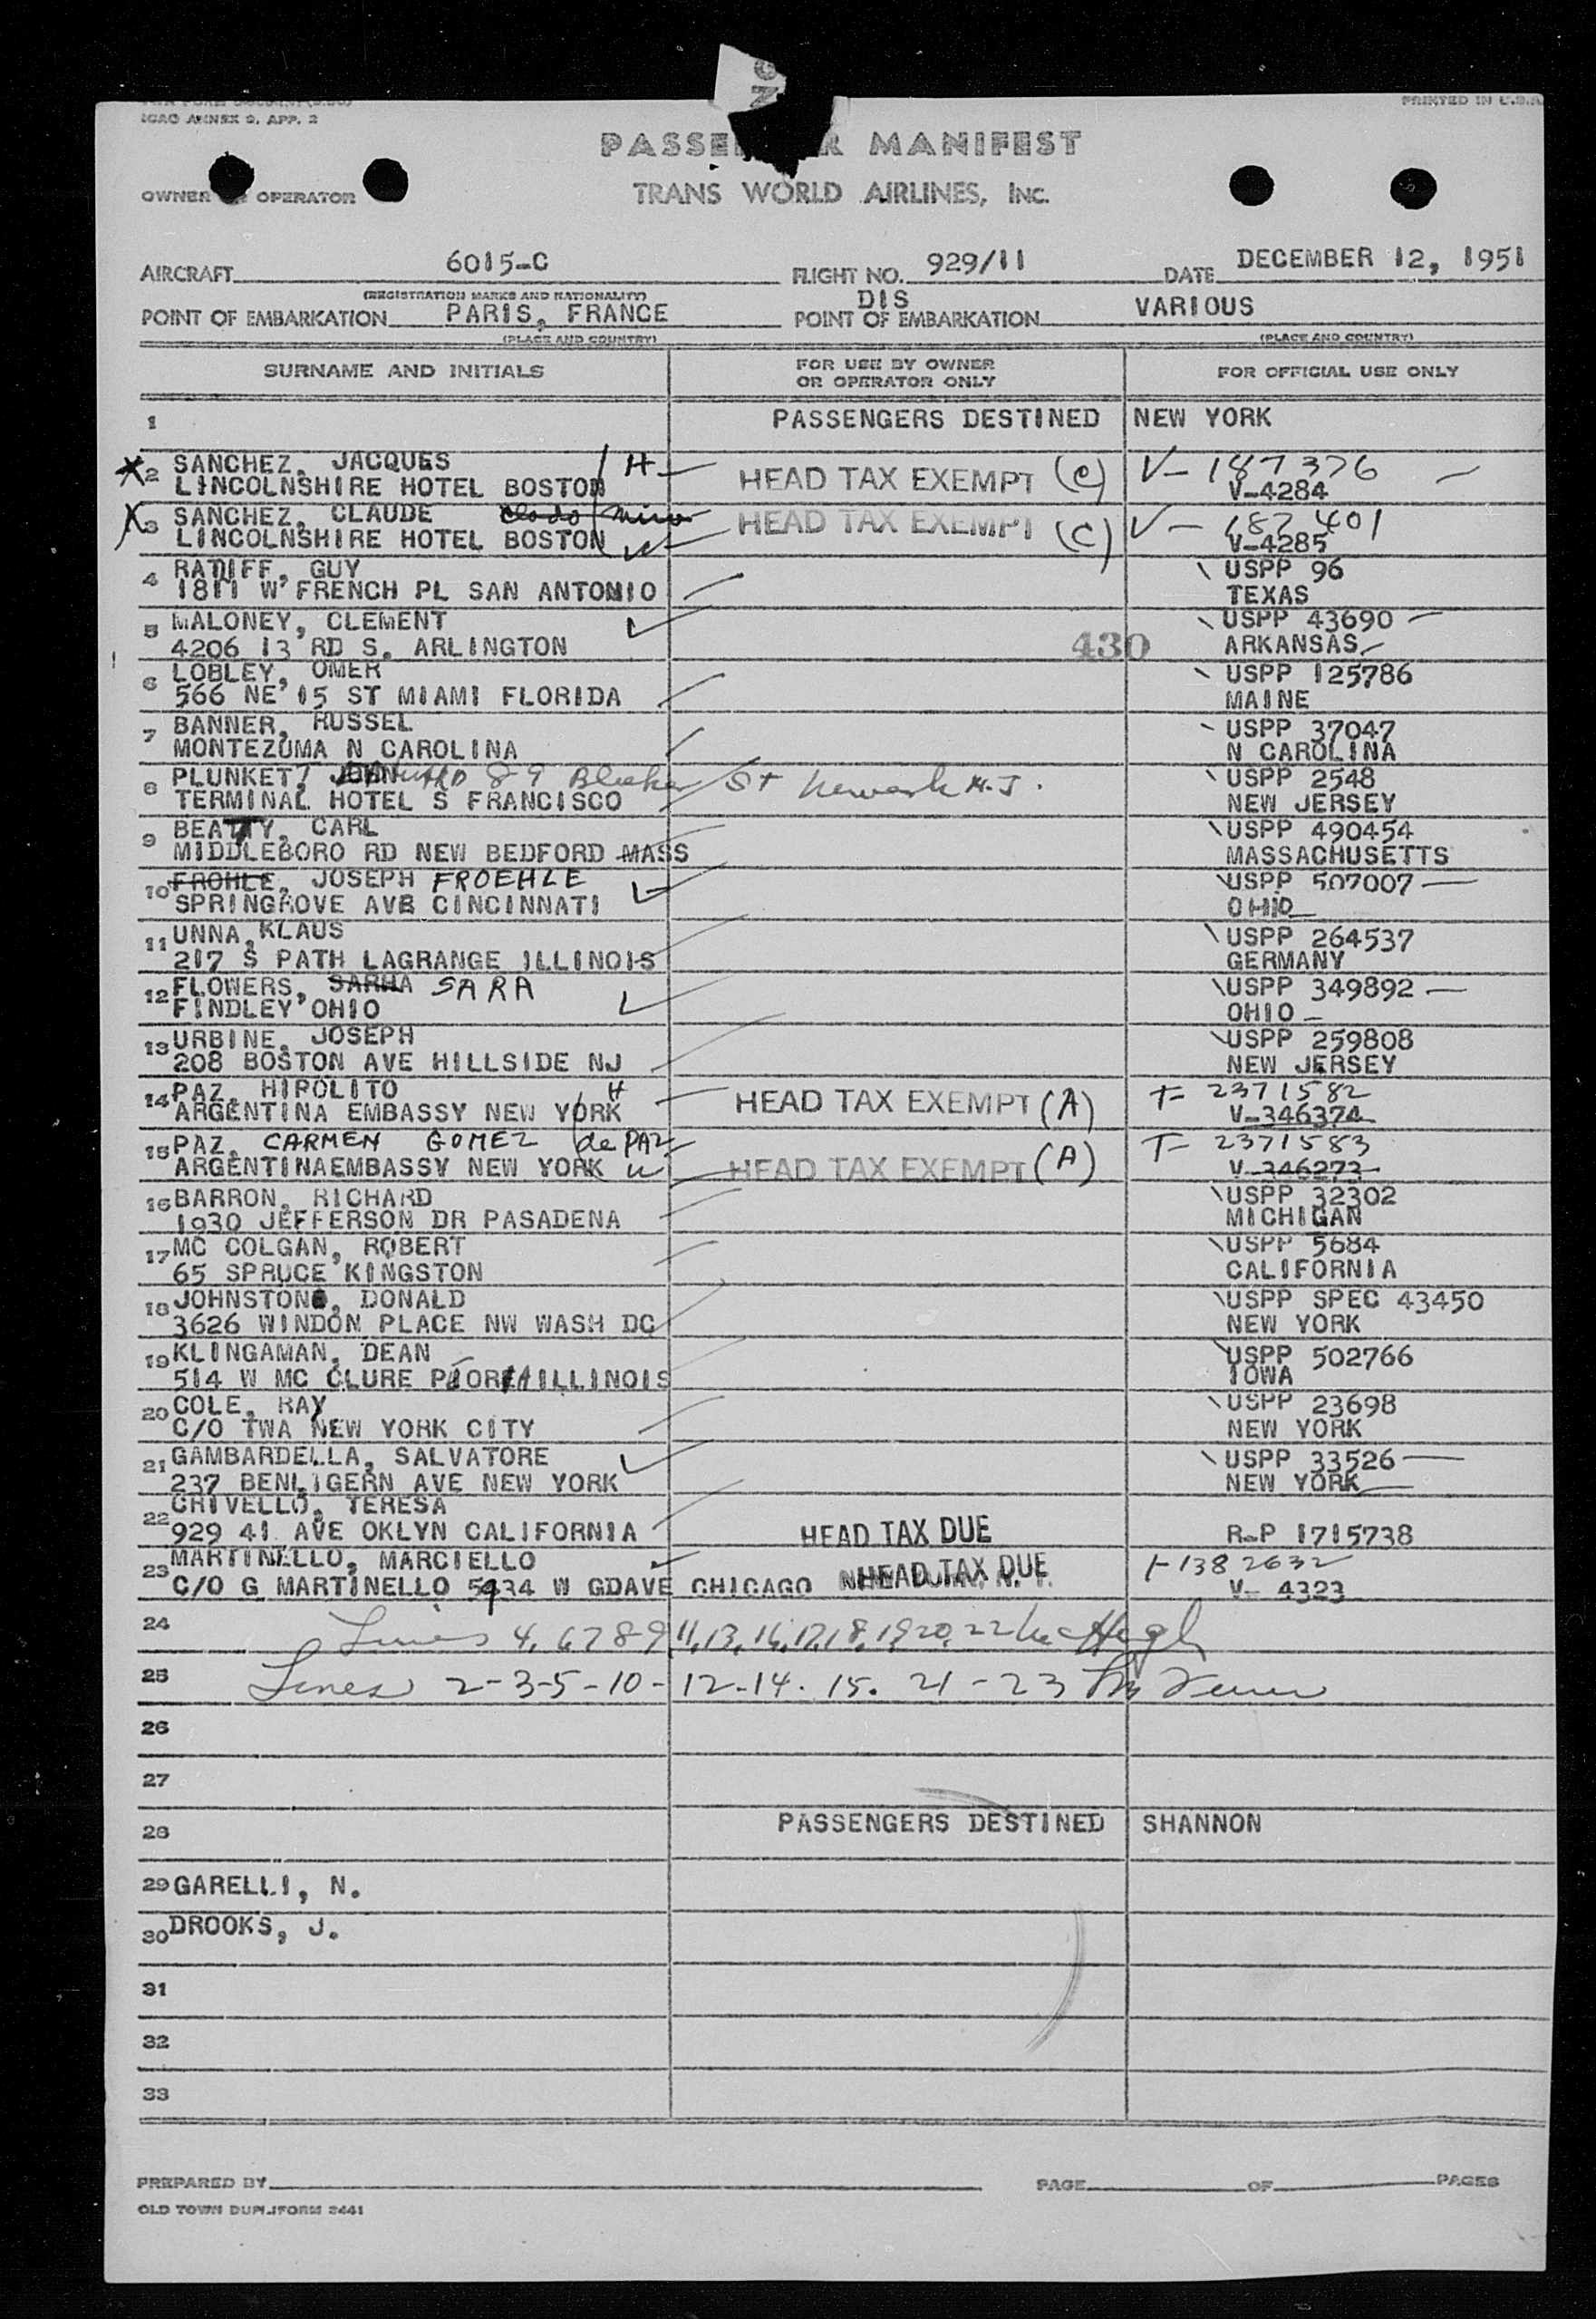 ICAO ANNEX 9, APP. 2
PRINTED IN U.S.A.
PASSE R MANIFEST
OWNER OPERATOR
TRANS WORLD AIRLINES, INC.
AIRCRAFT 6015-C FLIGHT NO. 929/11 DATE DECEMBER 12, 1951
(REGISTRATION MARKS AND NATIONALITY)
DIS
POINT OF EMBARKATION PARIS, FRANCE POINT OF EMBARKATION VARIOUS
(PLACE AND COUNTRY) (PLACE AND COUNTRY)
SURNAME AND INITIALS FOR USE BY OWNER OR OPERATOR ONLY FOR OFFICIAL USE ONLY
1 PASSENGERS DESTINED NEW YORK
2 SANCHEZ, JACQUES H HEAD TAX EXEMPT (C) V-187376
LINCOLNSHIRE HOTEL BOSTON V-4284
3 SANCHEZ, CLAUDE HEAD TAX EXEMPT (C) V-187401
LINCOLNSHIRE HOTEL BOSTON W V-4285
4 RATLIFF, GUY USPP 96
1811 W FRENCH PL SAN ANTONIO TEXAS
5 MALONEY, CLEMENT USPP 43690
4206 13 RD S. ARLINGTON 430 ARKANSAS
6 LOBLEY, OMER USPP 125786
566 NE 15 ST MIAMI FLORIDA MAINE
7 BANNER, RUSSEL USPP 37047
MONTEZUMA N CAROLINA N CAROLINA
8 PLUNKETT JOHN 89 Bleeker St Newark N.J. USPP 2548
TERMINAL HOTEL S FRANCISCO NEW JERSEY
9 BEATTY, CARL USPP 490454
MIDDLEBORO RD NEW BEDFORD MASS MASSACHUSETTS
10 FROHLE, JOSEPH FROEHLE USPP 507007
SPRINGROVE AVE CINCINNATI OHIO
11 UNNA, KLAUS USPP 264537
217 S PATH LAGRANGE ILLINOIS GERMANY
12 FLOWERS, SARHA SARA USPP 349892
FINDLEY OHIO OHIO
13 URBINE, JOSEPH USPP 259808
208 BOSTON AVE HILLSIDE NJ NEW JERSEY
14 PAZ, HIPOLITO H HEAD TAX EXEMPT (A) T-2371582
ARGENTINA EMBASSY NEW YORK V-346374
15 PAZ, CARMEN GOMEZ de PAZ HEAD TAX EXEMPT (A) T-2371583
ARGENTINAEMBASSY NEW YORK W V-346273
16 BARRON, RICHARD USPP 32302
1930 JEFFERSON DR PASADENA MICHIGAN
17 MC COLGAN, ROBERT USPP 5684
65 SPRUCE KINGSTON CALIFORNIA
18 JOHNSTON, DONALD USPP SPEC 43450
3626 WINDON PLACE NW WASH DC NEW YORK
19 KLINGAMAN, DEAN USPP 502766
514 W MC CLURE PEORIA ILLINOIS IOWA
20 COLE, RAY USPP 23698
C/O TWA NEW YORK CITY NEW YORK
21 GAMBARDELLA, SALVATORE USPP 33526
237 BENLIGERN AVE NEW YORK NEW YORK
22 CRIVELLO, TERESA
929 41 AVE OKLYN CALIFORNIA HEAD TAX DUE R-P 1715738
23 MARTINELLO, MARCIELLO HEAD TAX DUE I-1382632
C/O G MARTINELLO 5934 W GDAVE CHICAGO V- 4323
24 Lines 4, 6 7 8 9, 11, 13, 16, 17, 18, 19, 20, 22 McHugh
25 Lines 2-3-5-10-12-14. 15. 21-23
26
27
28 PASSENGERS DESTINED SHANNON
29 GARELLI, N.
30 DROOKS, J.
31
32
33
PREPARED BY PAGE OF PAGES
OLD TOWN DUPLIFORM 3441